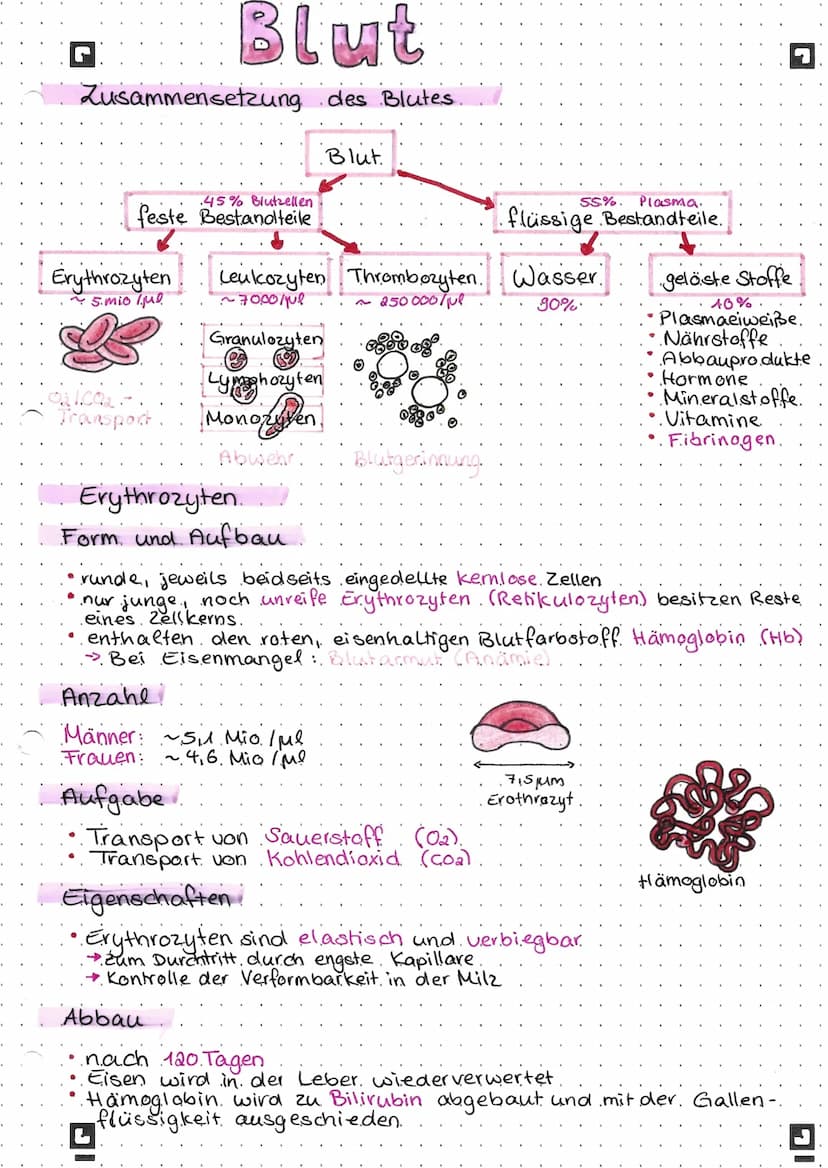 Blut
Zusammensetzung des Blutes
Blut
45% Blutzellen
feste Bestandteile
55% Plasma
flüssige Bestandteile
Erythrozyten
~ 5 mio /µl
Leukozyten
~ 7000/µl
Thrombozyten
~ 250 000/µl
Wasser
90%
gelöste Stoffe
10%
O2/CO2 -
Transport
Granulozyten
Lymphozyten
Monozyten
Abwehr
Blutgerinnung
• Plasmaeiweiße
• Nährstoffe
• Abbauprodukte
• Hormone
• Mineralstoffe
• Vitamine
• Fibrinogen
Erythrozyten
Form und Aufbau
• runde, jeweils beidseits eingedellte kernlose Zellen
• nur junge, noch unreife Erythrozyten (Retikulozyten) besitzen Reste
eines Zellkerns
• enthalten den roten, eisenhaltigen Blutfarbstoff Hämoglobin (Hb)
→ Bei Eisenmangel: Blutarmut (Anämie)
Anzahl
Männer: ~5,1 Mio /µl
Frauen: ~ 4,6 Mio /µl
7,5 µm
Erothrozyt
Aufgabe
• Transport von Sauerstoff (O2)
• Transport von Kohlendioxid (CO2)
Hämoglobin
Eigenschaften
• Erythrozyten sind elastisch und verbiegbar
→ zum Durchtritt durch engste Kapillare
→ Kontrolle der Verformbarkeit in der Milz
Abbau
• nach 120 Tagen
• Eisen wird in der Leber wiederverwertet
• Hämoglobin wird zu Bilirubin abgebaut und mit der Gallen-
flüssigkeit ausgeschieden